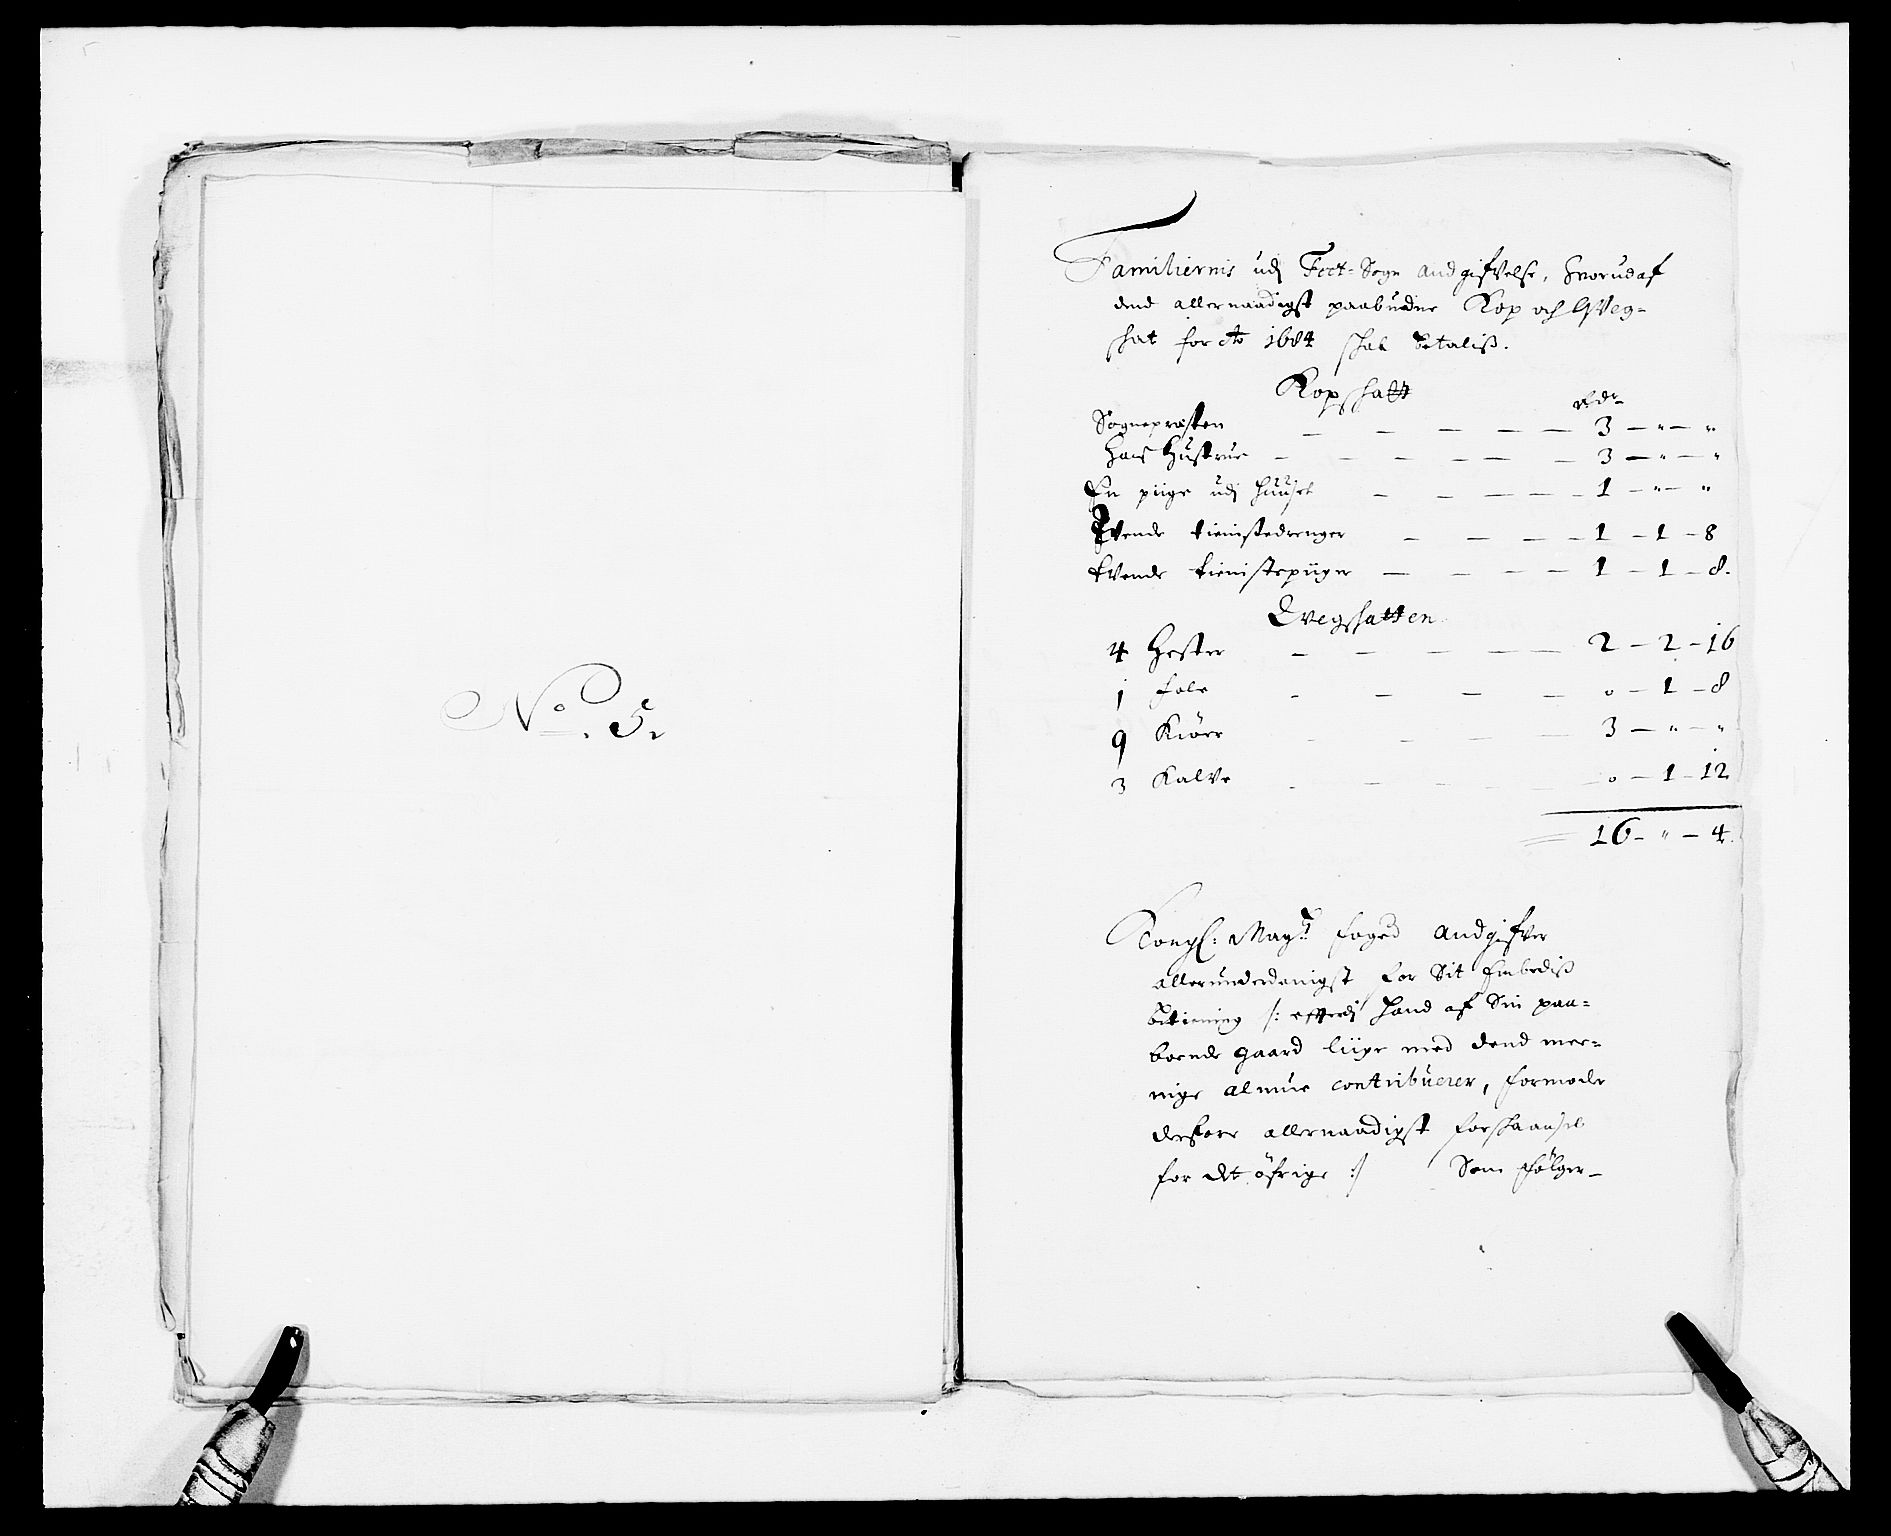 No. 5.
Familiernis udj Foet-Sogn Andgifvelse, hvorudaf
dend allernaadigst paabudne Kop och Qveg-
skat for Ao 1684 skal betaliss.
Kopskatt
Rdr
Sognepræsten — — — — — 3 — " — "
Hans Hustrue — — — — — 3 — " — "
En piige udj huuset — — — — 1 — " — "
Tvende tienistedrenger — — — — 1 — 1 — 8
tvende tienistepiiger — — — — 1 — 1 — 8.
Qvegskatten
4 Hester — — — — — 2 — 2 — 16
1 fole — — — — 0 — 1 — 8
9 Kiörr — — — — 3 — " — "
3 Kalve — — — — 0 — 1 — 12
16 — " — 4.
Kongl: Mayts foged Andgifver
allerunderdanigst for Sit Embediss
betiening /: efftersom hand af Sin paa-
boende gaard liige med dend mee-
nige almue contribuerer, formoder
derfore allernaadigst forskaansel
for det öfrige :/ Som fölger